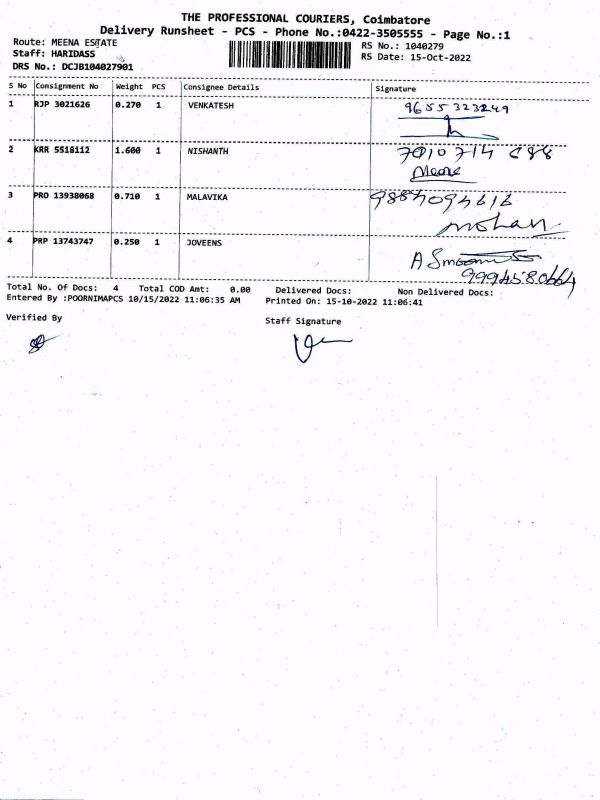 THE PROFESSIONAL COURIERS, Coimbatore
Delivery Runsheet - PCS - Phone No.:0422-3505555 - Page No.:1
Route: MEENA ESTATE
RS No.: 1040279
Staff: HARIDASS
RS Date: 15-Oct-2022
DRS No.: DCJB104027901
S No Consignment No Weight PCS Consignee Details Signature
1 RJP 3021626 0.270 1 VENKATESH 9655323249
2 KRR 5518112 1.600 1 NISHANTH 7010714
3 PRO 13938068 0.710 1 MALAVIKA
mohan
4 PRP 13743747 0.250 1 JOVEENS
9994580664
Total No. Of Docs: 4 Total COD Amt: 0.00 Delivered Docs: Non Delivered Docs:
Entered By :POORNIMAPCS 10/15/2022 11:06:35 AM Printed On: 15-10-2022 11:06:41
Verified By
Staff Signature